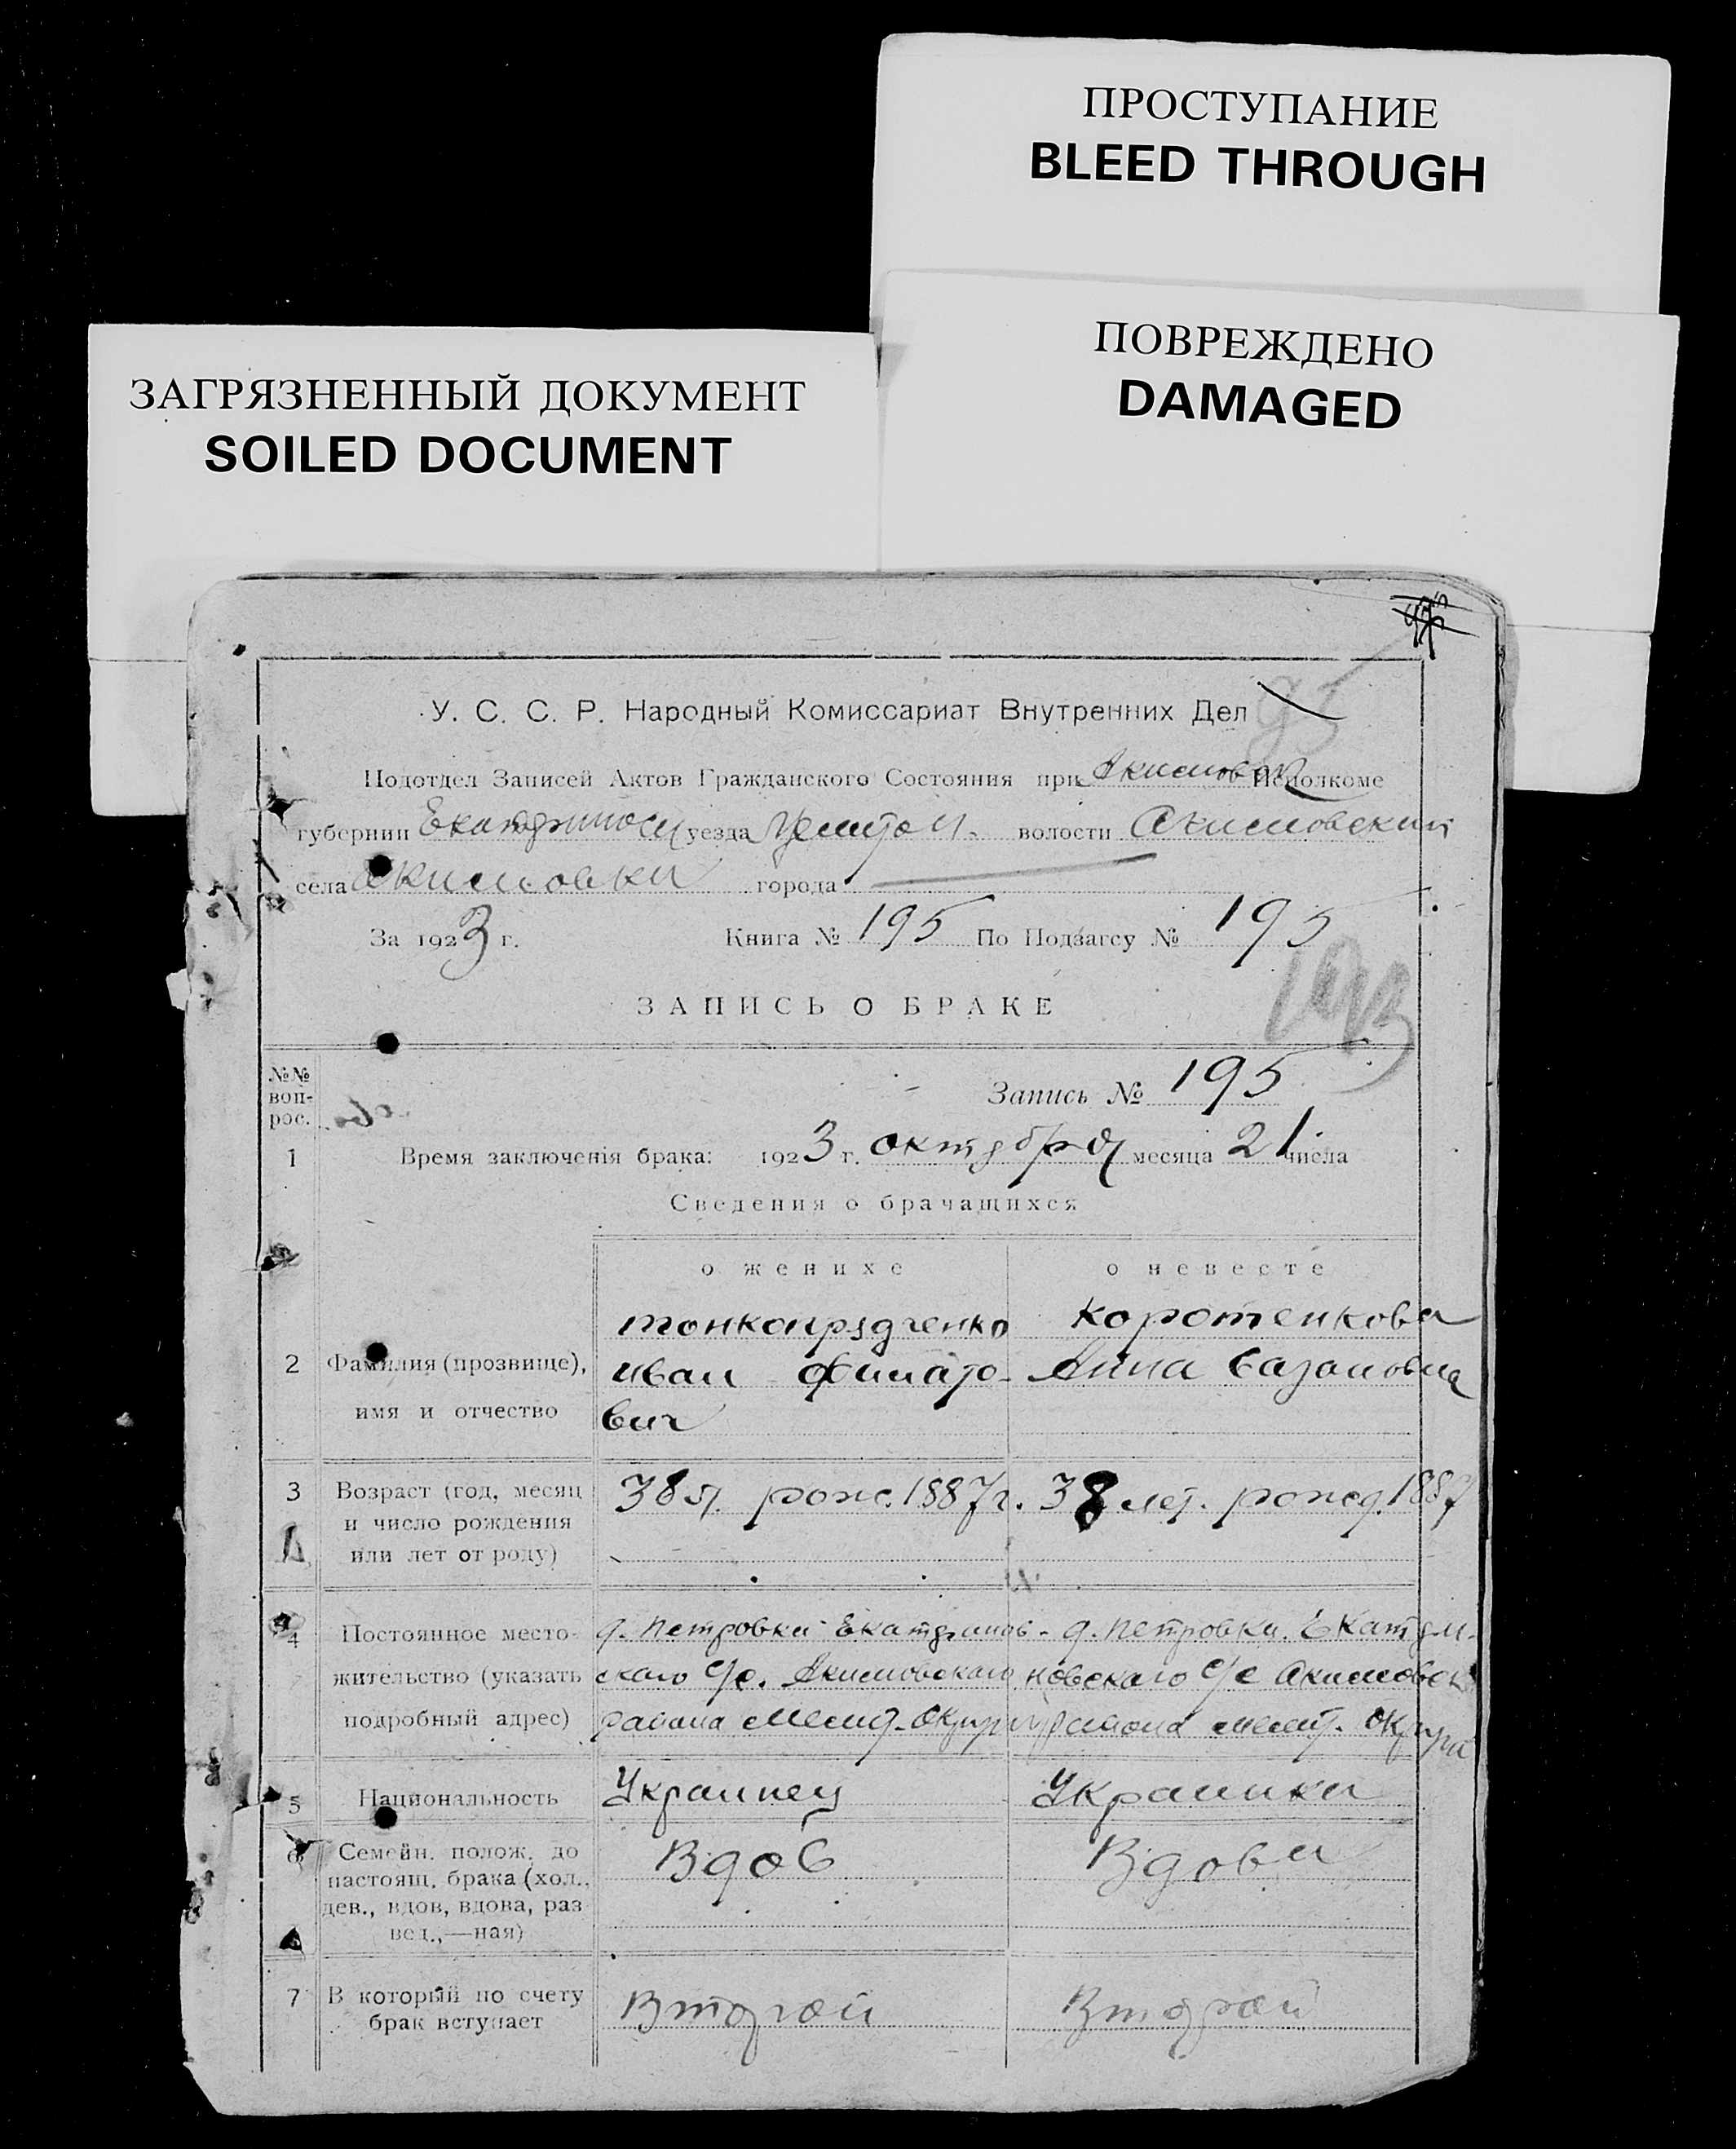 ПРОСТУПАНИЕ
BLEED THROUGH
ПОВРЕЖДЕНО
DAMAGED
ЗАГРЯЗНЕННЫЙ ДОКУМЕНТ
SOILED DOCUMENT
У. С. С. Р. Народный Комиссариат Внутренних Дел
95
Подотдел Записей Актов Гражданского Состояния при Акимовск Исполкоме
губернии Екатеринос уезда Мелитоп. волости Акимовский
села Акимовки города
За 1923 г. Книга № 195 По Подзагсу № 195
1923
ЗАПИСЬ О БРАКЕ
№№ воп- рос.
Запись № 195
1 Время заключенія брака: 1923 г. октября месяца 21 числа
Сведения о брачащихся
о женихе о невесте
тонкопрядченко Коротенкова
2 Фамилия (прозвище), Иван Филато- Анна
имя и отчество вич
3 Возраст (год, месяц 38 л. рож. 1887 г. 38 лет. рожд. 1887
и число рождения
или лет от роду)
4 Постоянное место- д. Петровки Екатеринов- д. Петровки. Екатери-
жительство (указать скаго с/с. Акимовскаго новскаго с/с Акимовск
подробный адрес) района Мелит. Округа района мелит. Округа
5 Национальность Украинец Украинка
6 Семейн. полож. до Вдов Вдова
настоящ. брака (хол.,
дев., вдов, вдова, раз
вед.,—ная)
7 В который по счету Второй Второй
брак вступает